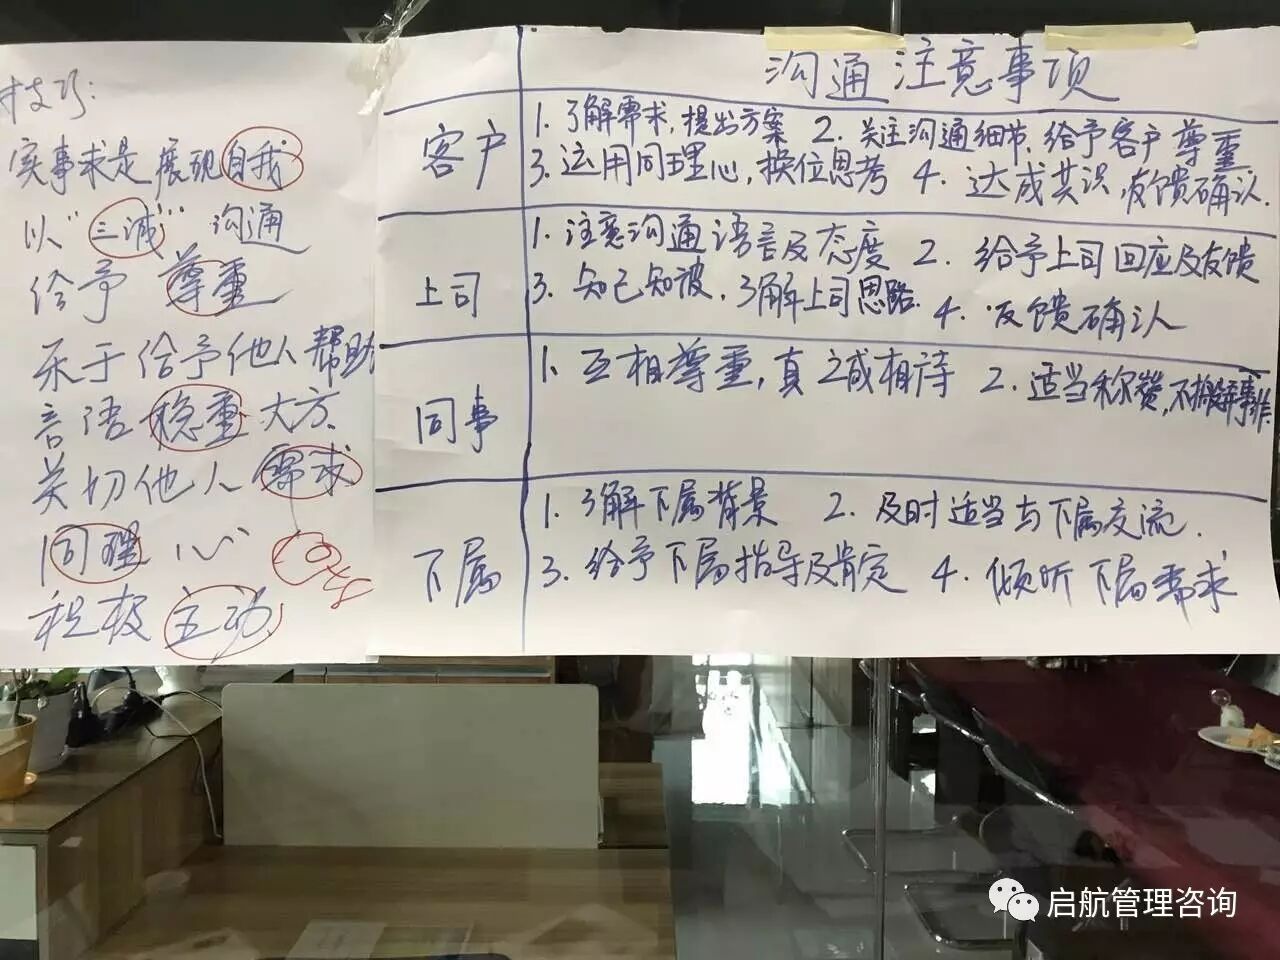 技巧:
实事求是 展现自我
以"三诚" 沟通
给予 尊重
乐于给予他人帮助
言语稳重大方
关切他人需求
同理心
积极主动
沟通注意事项
客户
1. 了解需求,提出方案 2. 关注沟通细节,给予客户尊重
3. 运用同理心,换位思考 4. 达成共识 反馈确认.
上司
1. 注意沟通语言及态度 2. 给予上司回应及反馈
3. 知己知彼,了解上司思路. 4. 反馈确认
同事
1. 互相尊重,真诚相待 2. 适当称赞,不搬弄事非.
下属
1. 了解下属背景 2. 及时适当与下属交流.
3. 给予下属指导及肯定 4. 倾听下属需求
启航管理咨询